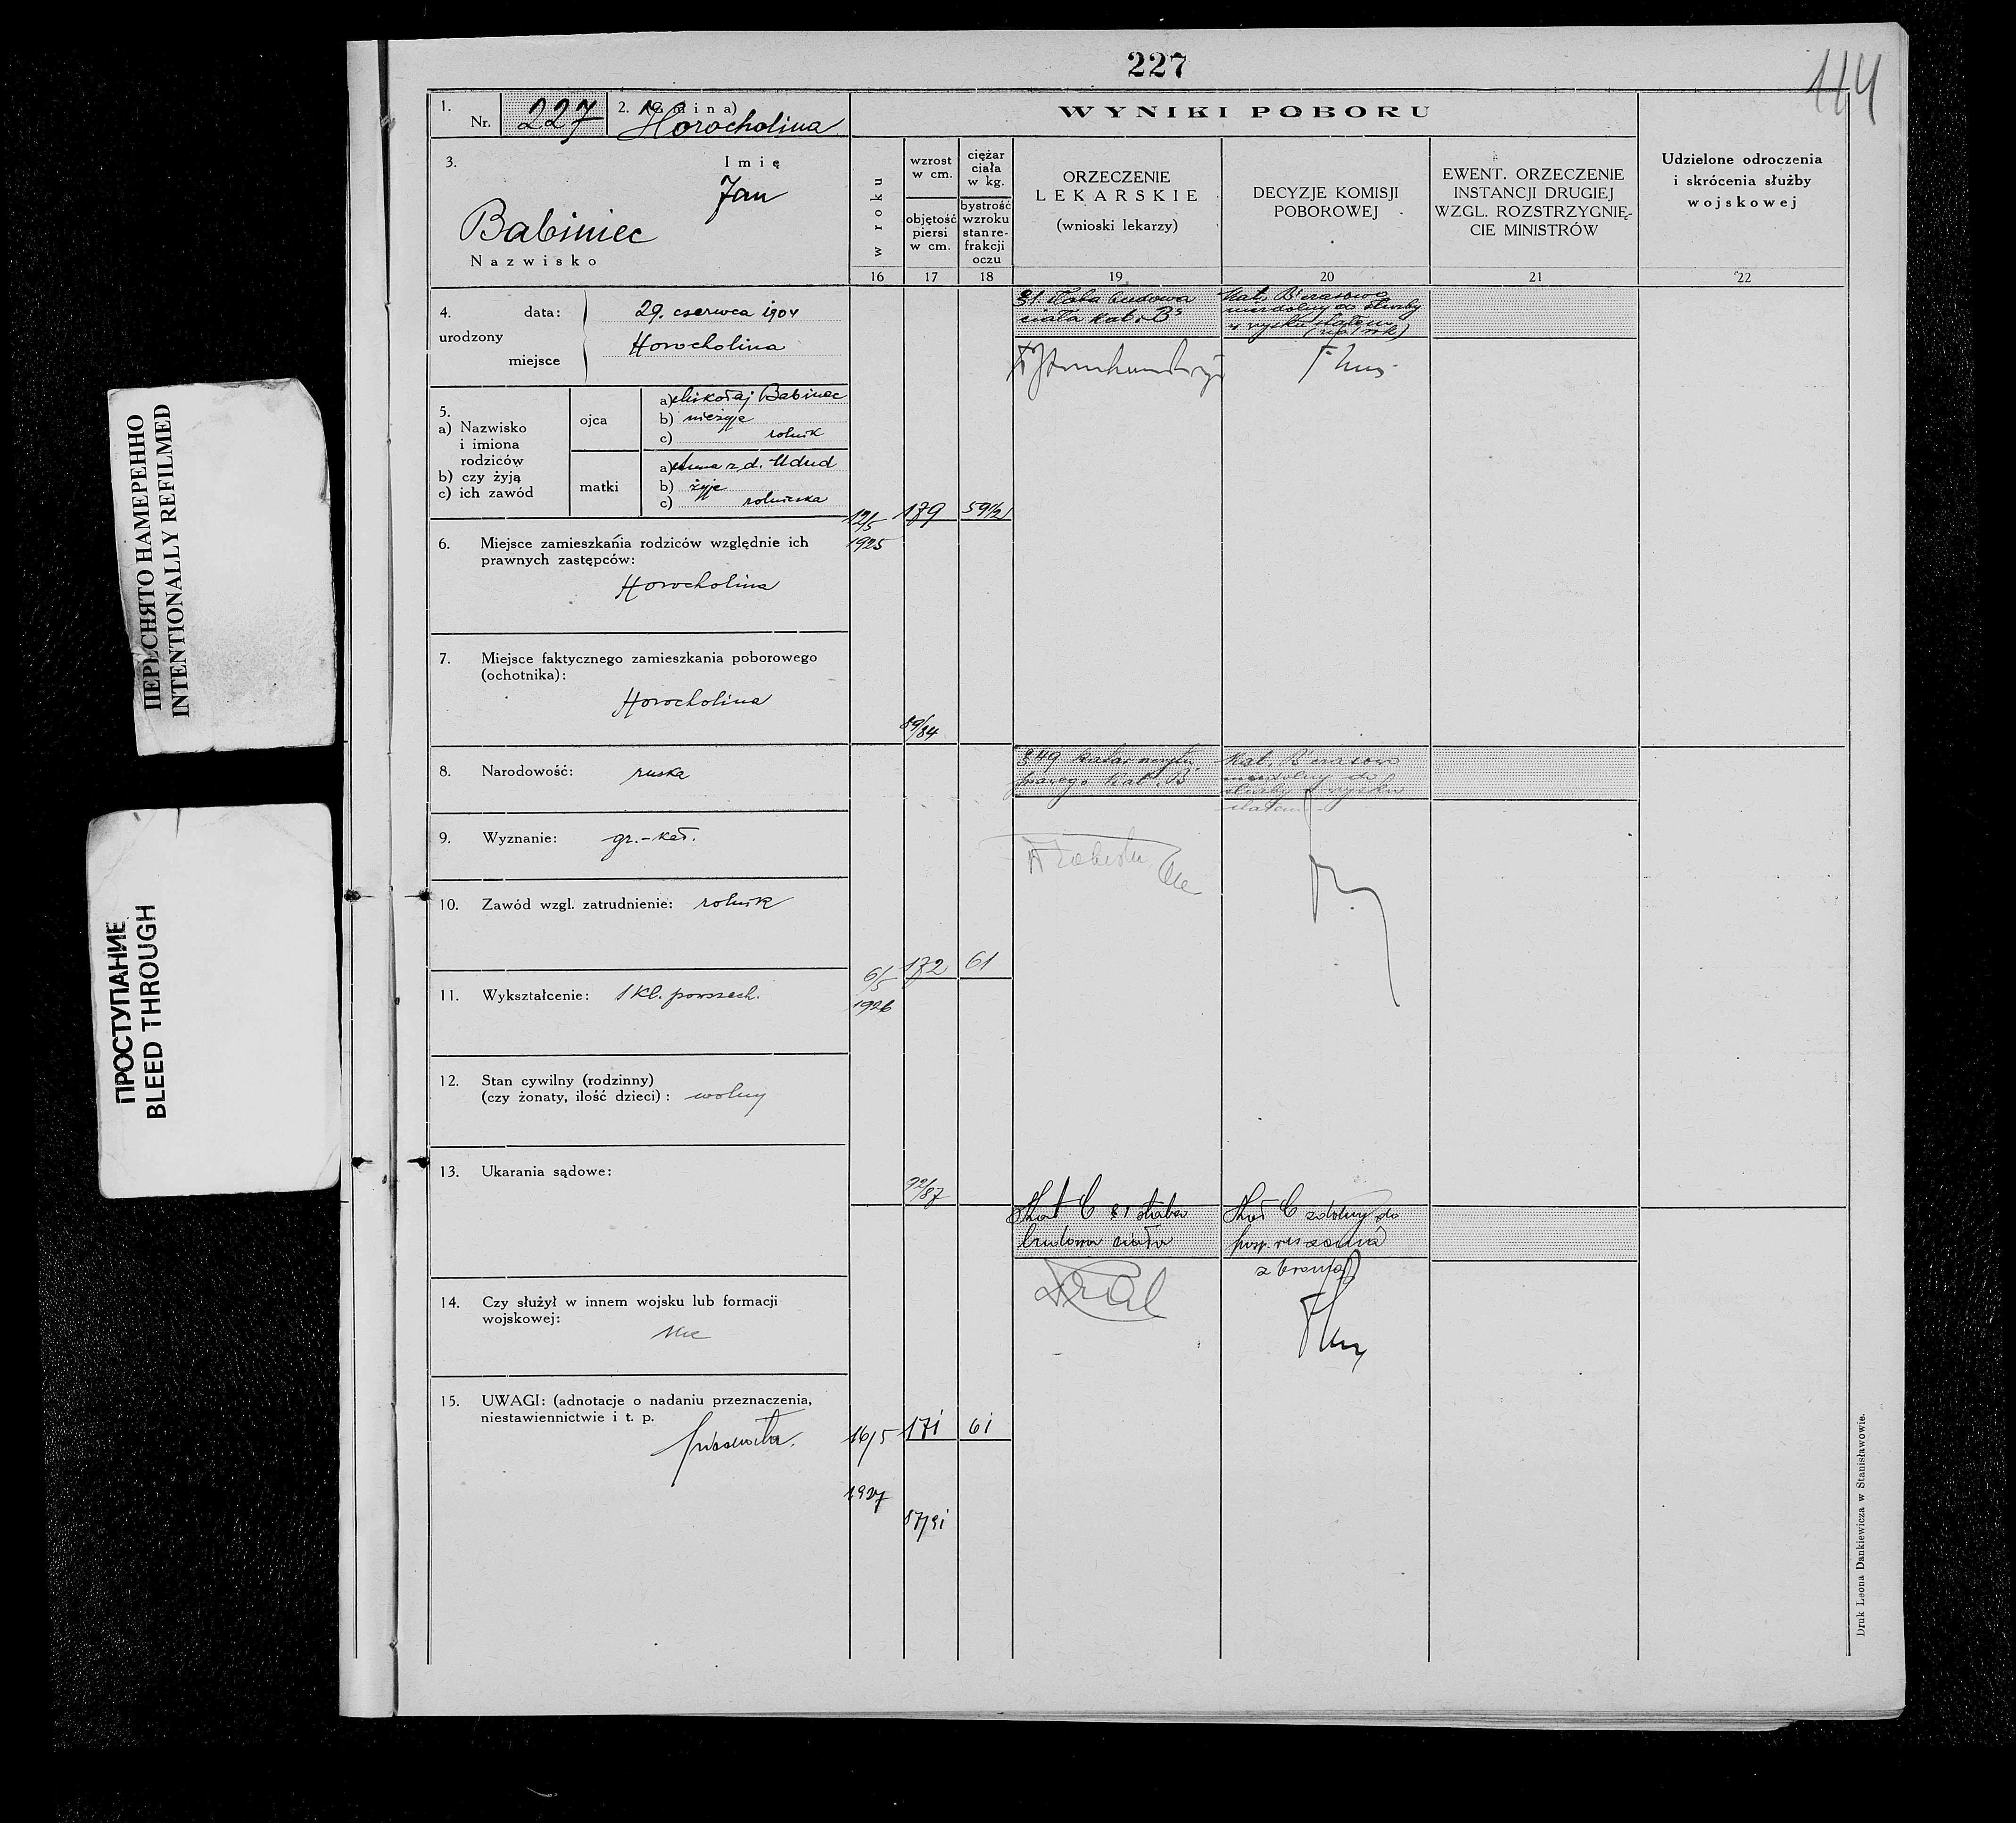 227
114
1.
Nr. 227
2. (Gmina)
Horocholina
WYNIKI POBORU
3.
Imię
Jan
Babiniec
Nazwisko
w roku
wzrost
w cm.
objętość
piersi
w cm.
ciężar
ciała
w kg.
bystrość
wzroku
stan re-
frakcji
oczu
ORZECZENIE
LEKARSKIE
(wnioski lekarzy)
DECYZJE KOMISJI
POBOROWEJ
EWENT. ORZECZENIE
INSTANCJI DRUGIEJ
WZGL. ROZSTRZYGNIĘ-
CIE MINISTRÓW
Udzielone odroczenia
i skrócenia służby
wojskowej
16 17 18 19 20 21 22
4. data: 29. czerwca 1904
urodzony
miejsce Horocholina
§1. słaba budowa
ciała kat. B
Kat. B czasowo
niezdolny do służby
w wojsku stałem
(na 1 rok)
5.
a) Nazwisko
i imiona
rodziców
b) czy żyją
c) ich zawód
ojca
a) Mikołaj Babiniec
b) nieżyje
c) rolnik
matki
a) Anna z d. Udud
b) żyje
c) rolniczka
12/5
1925
179
59 1/2
89/84
6. Miejsce zamieszkania rodziców względnie ich
prawnych zastępców:
Horocholina
7. Miejsce faktycznego zamieszkania poborowego
(ochotnika):
Horocholina
8. Narodowość: ruska
§ 49
prawego Kat. B
Kat. B czasowo
niezdolny do
służby w wojsku
stałem
9. Wyznanie: gr.-kat.
10. Zawód wzgl. zatrudnienie: rolnik
6/5
1926
172
61
92/87
11. Wykształcenie: 1 kl. powszech.
12. Stan cywilny (rodzinny)
(czy żonaty, ilość dzieci): wolny
13. Ukarania sądowe:
Kat C §1 słaba
budowa ciała
Kat C zdolny do
posp. ruszenia
z bronią
14. Czy służył w innem wojsku lub formacji
wojskowej:
nie
15. UWAGI: (adnotacje o nadaniu przeznaczenia,
niestawiennictwie i t. p.
16/5
1927
171
61
87/91
Druk Leona Dankiewicza w Stanisławowie.
ПЕРЕСНЯТО НАМЕРЕННО
INTENTIONALLY REFILMED
ПРОСТУПАНИЕ
BLEED THROUGH